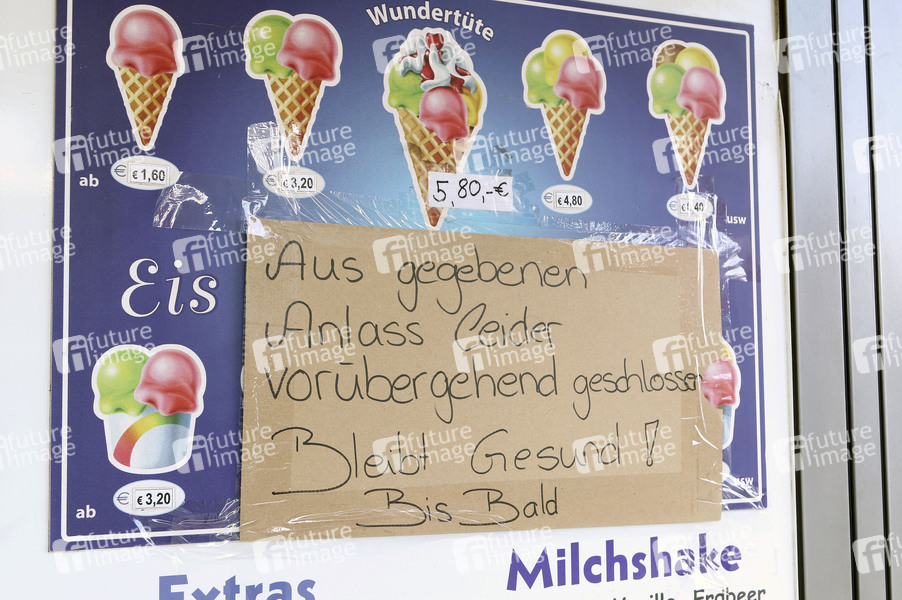 Wundertüte
ab
€ 1,60
€ 3,20
5,80,-€
€ 4,80
usw
Eis
Aus gegebenen
Anlass Leider
vorübergehend geschlossen
Bleibt Gesund!
Bis Bald
ab
€ 3,20
usw
Extras
Milchshake
Vanille, Erdbeer
future image